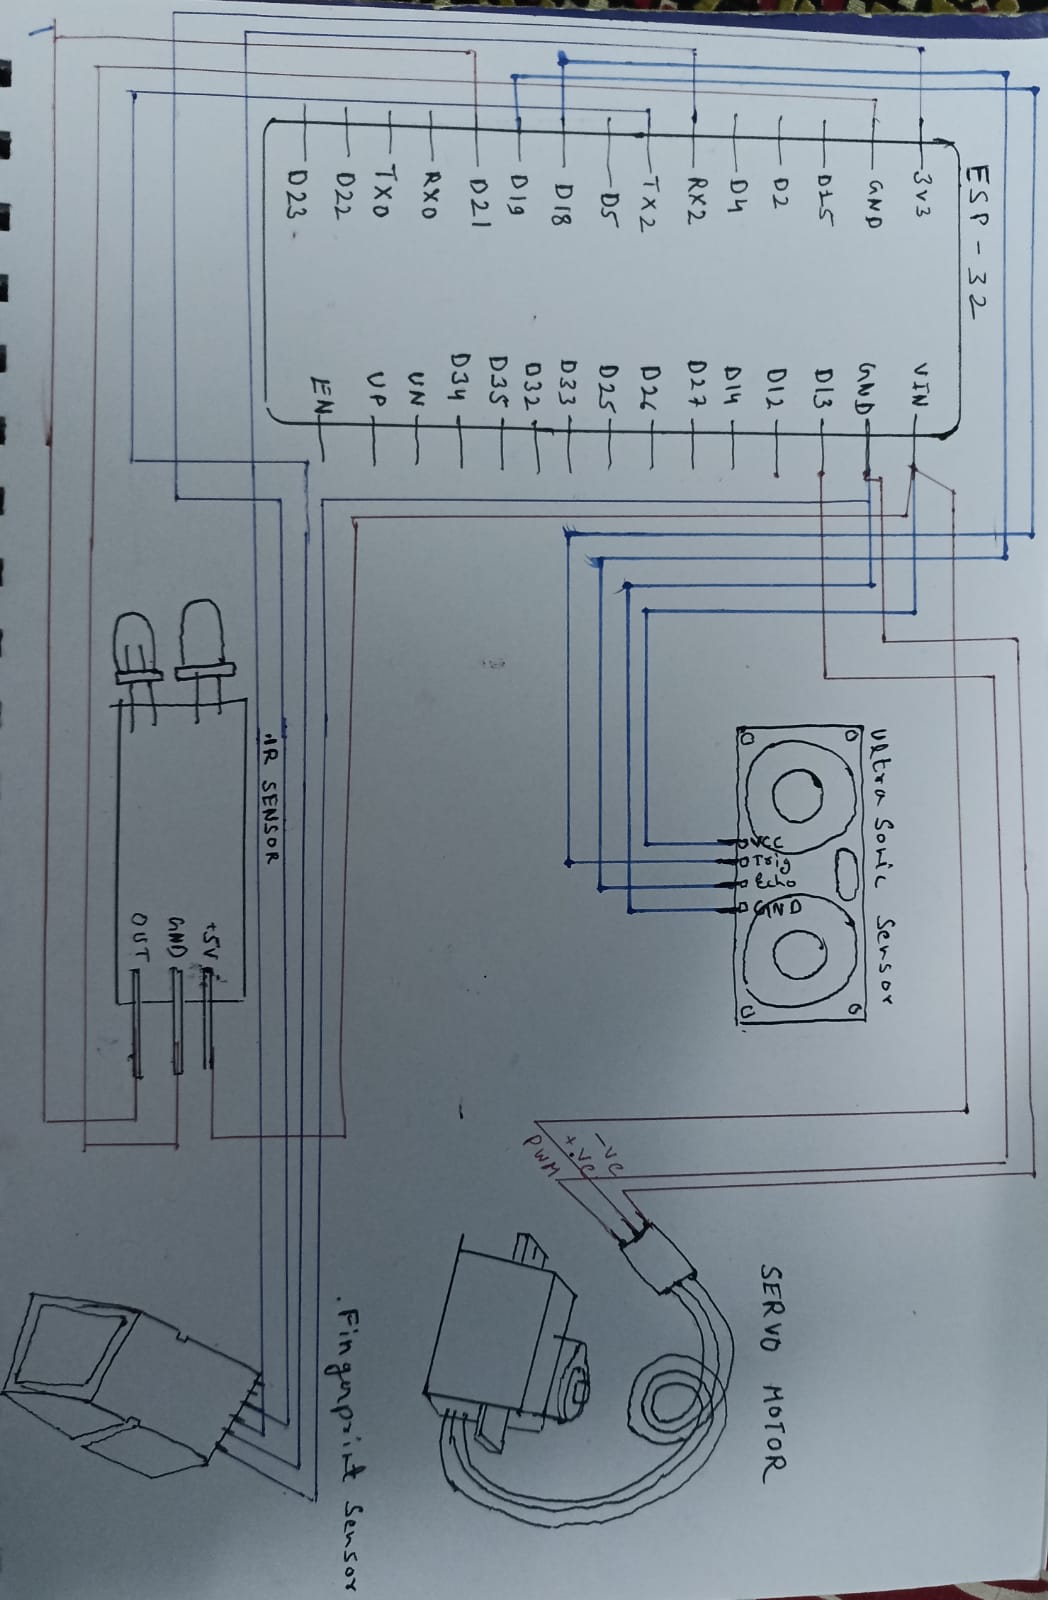 ESP-32
3V3
GND
D15
D2
D4
RX2
TX2
D5
D18
D19
D21
RX0
TX0
D22
D23
VIN
GND
D13
D12
D14
D27
D26
D25
D33
D32
D35
D34
VN
VP
EN
Ultra Sonic Sensor
VCC
Trig
GND
IR SENSOR
+5V
GND
OUT
-ve
+ve
PWM
SERVO MOTOR
Fingerprint Sensor